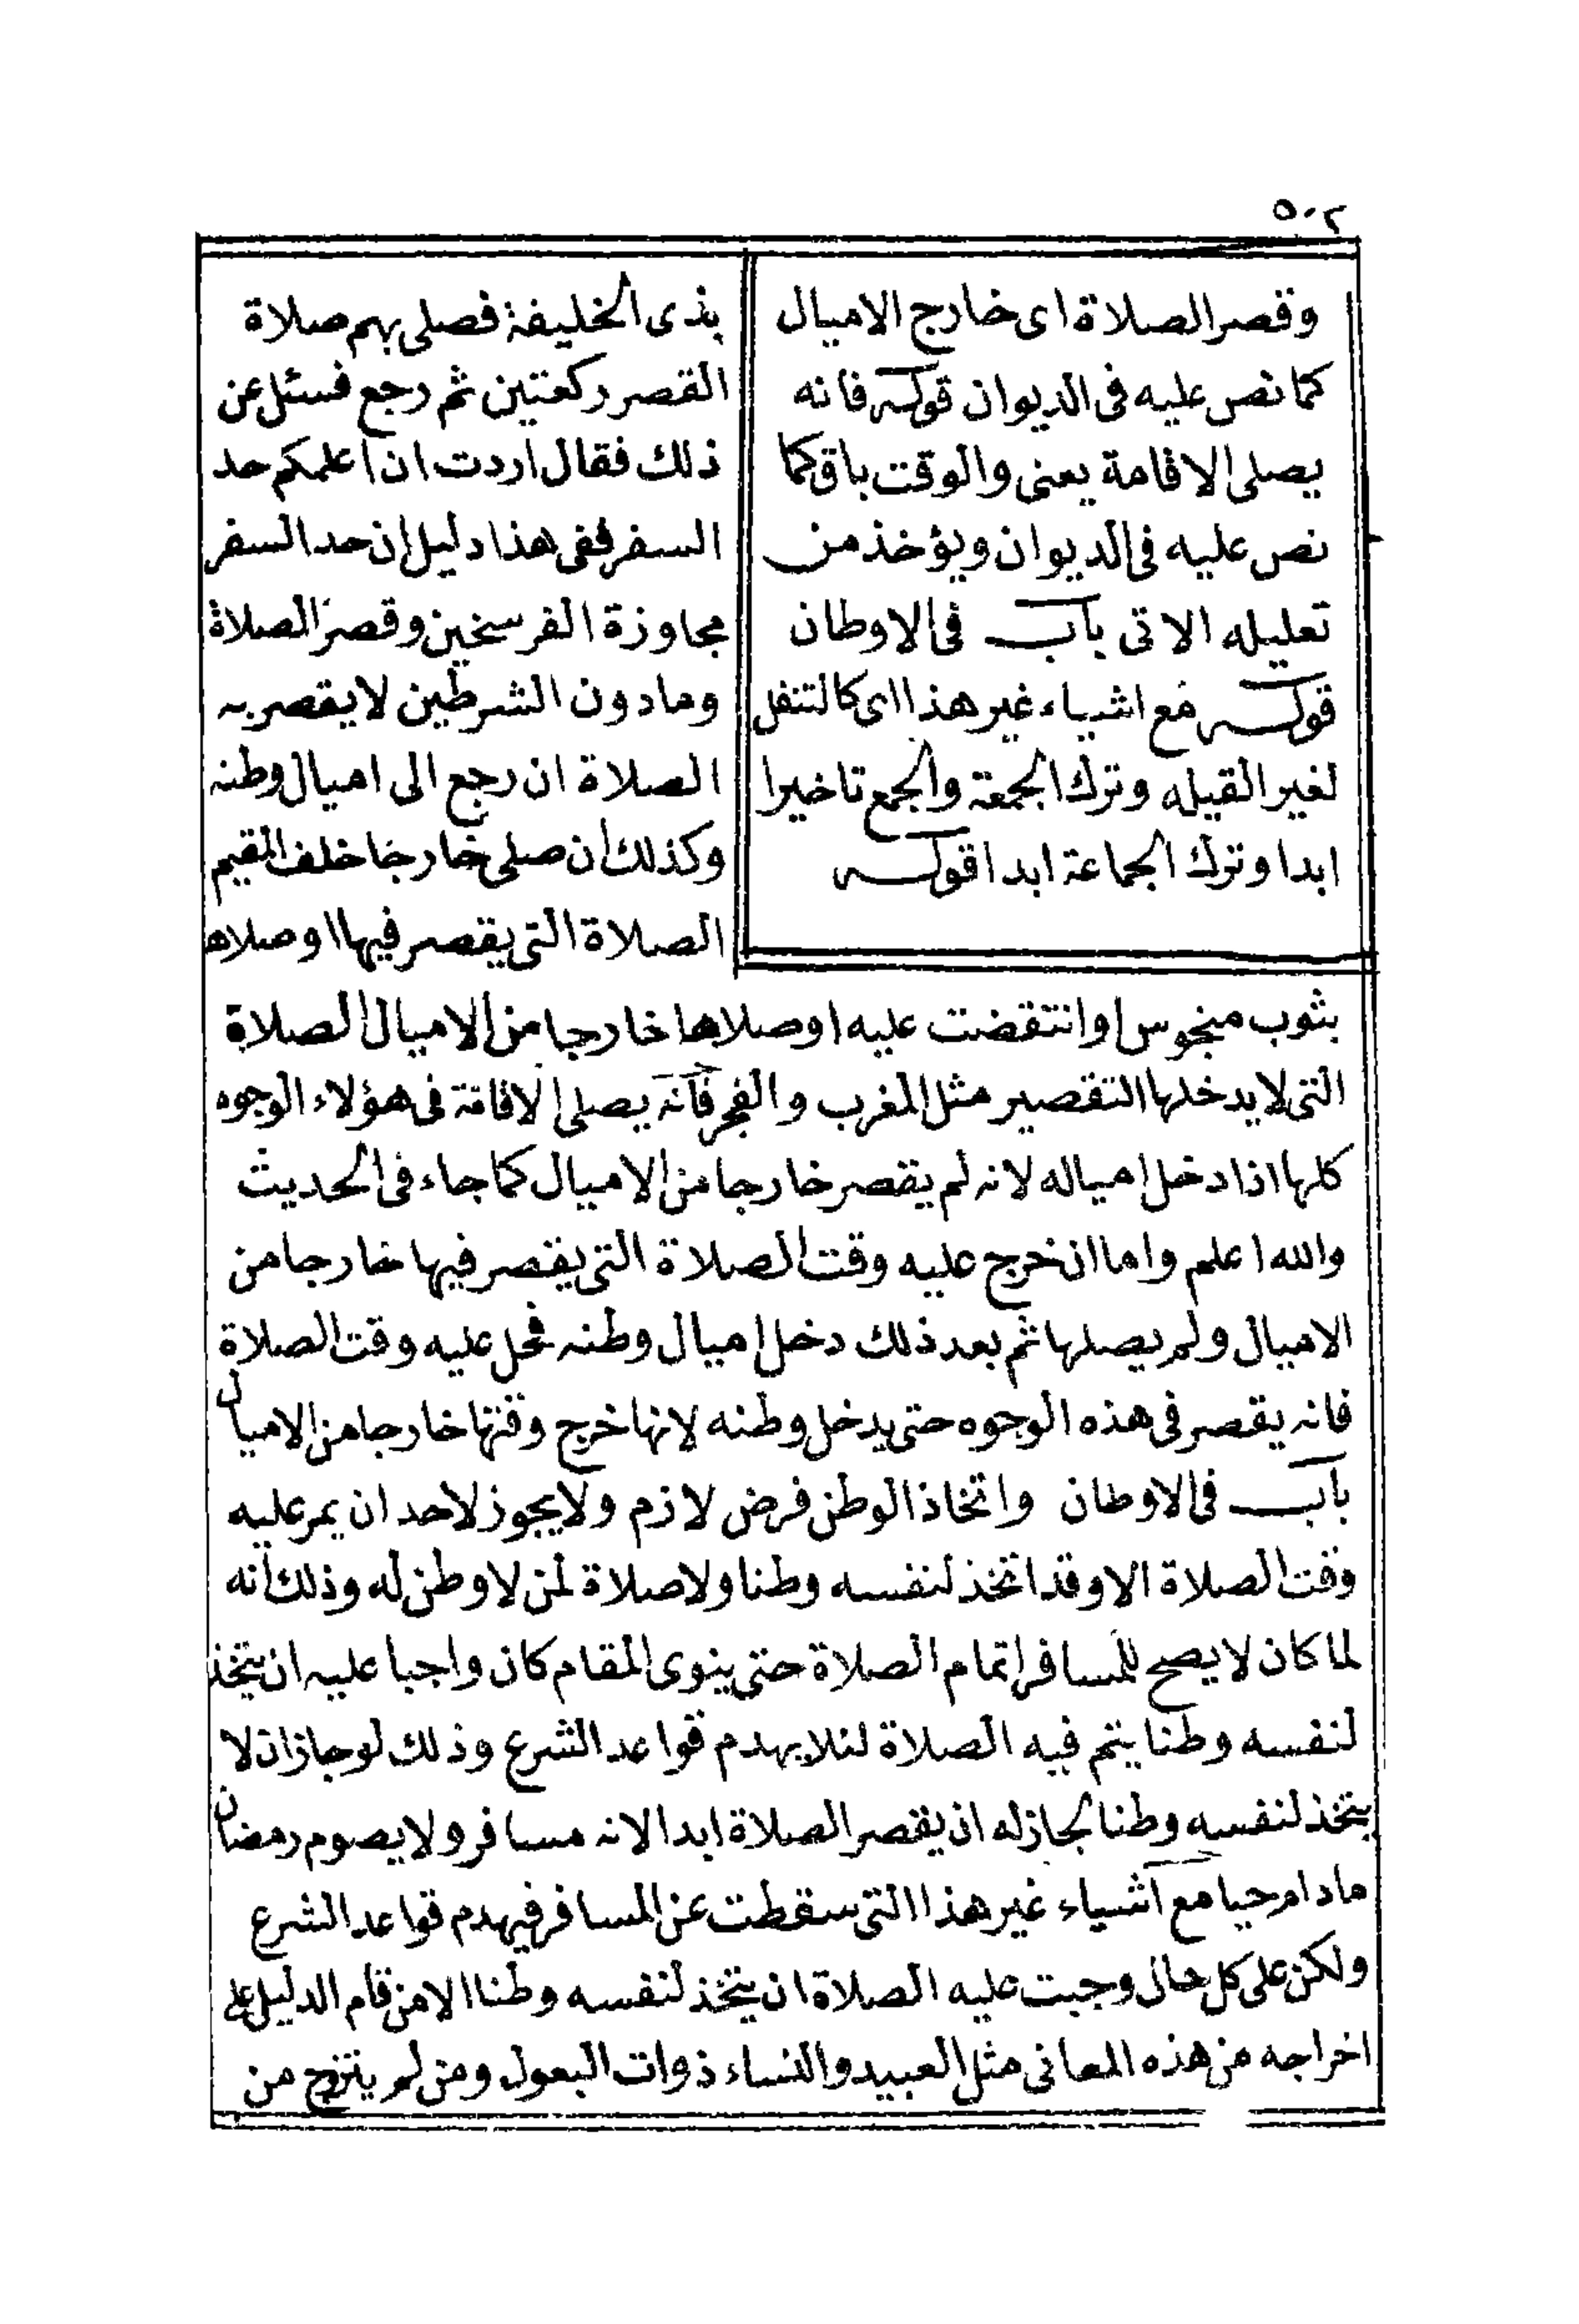 ٥٠٢
وقصر الصلاة اى خارج الاميال
كما نص عليه فى الديوان قوله فانه
يصلى الاقامة يعنى والوقت باق كما
نص عليه فى الديوان ويؤخذ من
تعليله الاتى باب فى الاوطان
قوله مع اشياء غير هذا اى كالتنفل
لغير القبله وترك الجمعة والجمع تاخيرا
ابدا وترك الجماعة ابدا قوله
بذى الخليفة فصلى بهم صلاة
القصر ركعتين ثم رجع فسئل عن
ذلك فقال اردت ان اعلمكم حد
السفر ففى هذا دليل ان حد السفر
مجاوزة الفرسخين وقصر الصلاة
ومادون الشرطين لا يقصر به
الصلاة ان رجع الى اميال وطنه
وكذلك ان صلى خارجا خلف المقيم
الصلاة التى يقصر فيها او صلاها
بثوب منجوس او انتقضت عليه او صلاها خارجا من الاميال الصلاة
التى لا يدخلها التقصير مثل المغرب والفجر فانه يصلى الاقامة فى هؤلاء الوجوه
كلها اذا دخل امياله لانه لم يقصر خارجا من الاميال كما جاء فى الحديث
والله اعلم واما ان خرج عليه وقت الصلاة التى يقصر فيها خارجا من
الاميال ولم يصلها ثم بعد ذلك دخل اميال وطنه فحل عليه وقت الصلاة
فانه يقصر فى هذه الوجوه حتى يدخل وطنه لانها خرج وقتها خارجا من الاميال
باب فى الاوطان واتخاذ الوطن فرض لازم ولا يجوز لاحد ان يمر عليه
وقت الصلاة الا وقد اتخذ لنفسه وطنا ولا صلاة لمن لا وطن له وذلك انه
لما كان لا يصح للمسافر اتمام الصلاة حتى ينوى المقام كان واجبا عليه ان يتخذ
لنفسه وطنا يتم فيه الصلاة لئلا يهدم قواعد الشرع وذلك لو جاز ان لا
يتخذ لنفسه وطنا لجاز له ان يقصر الصلاة ابدا لانه مسافر ولا يصوم رمضان
مادام حيا مع اشياء غير هذا التى سقطت عن المسافر فيهدم قواعد الشرع
ولكن على كل حال وجبت عليه الصلاة ان يتخذ لنفسه وطنا الا من قام الدليل على
اخراجه من هذه المعانى مثل العبيد والنساء ذوات البعول ومن لم يتزوج من